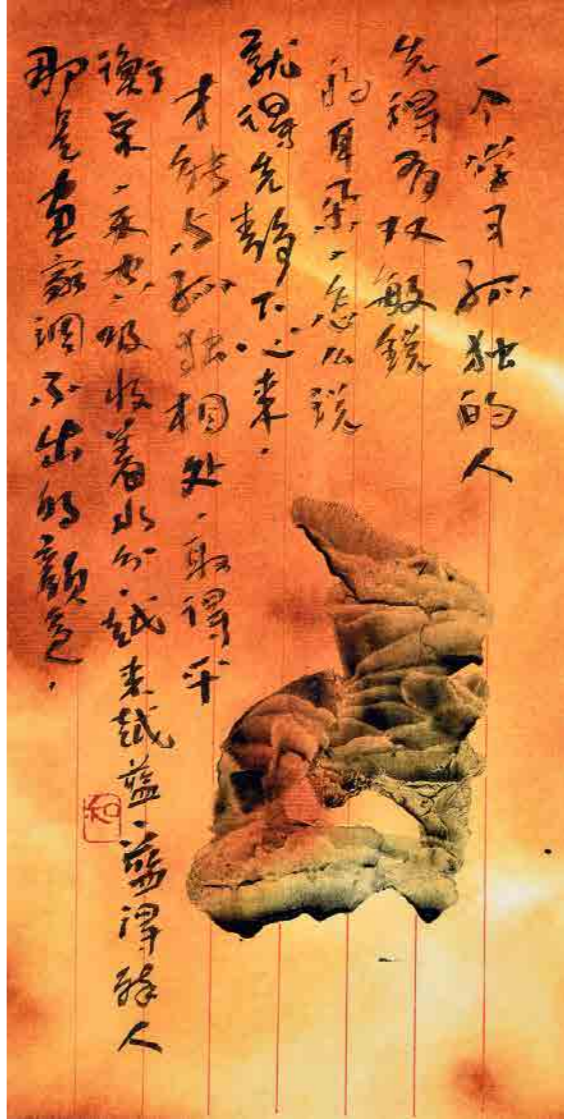 一个学习孤独的人
先得有双敏锐
的耳朵、怎么说
就得先静下心来，
才能与孤独相处、取得平
衡、天空吸收着水分、越来越蓝、蓝得醉人
那是画家调不出的颜色，
知